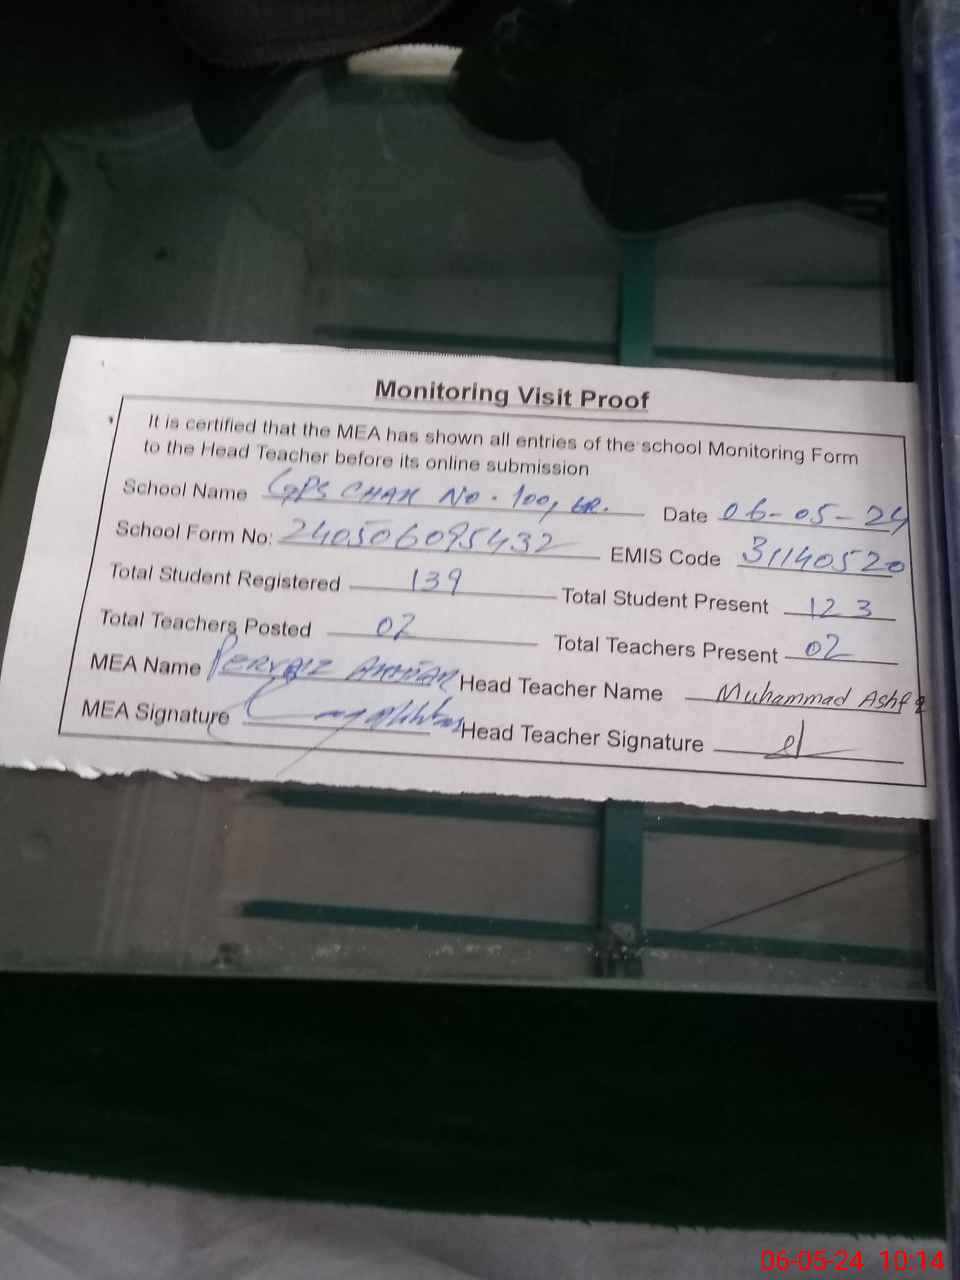 Monitoring Visit Proof
It is certified that the MEA has shown all entries of the school Monitoring Form
to the Head Teacher before its online submission
School Name GPS CHAK NO. 100, ER. Date 06-05-24
School Form No: 240506095432 EMIS Code 31140520
Total Student Registered 139 Total Student Present 123
Total Teachers Posted 02 Total Teachers Present 02
MEA Name PERVAIZ AKHTAR Head Teacher Name Muhammad Ashfq
MEA Signature Head Teacher Signature
06-05-24 10:14